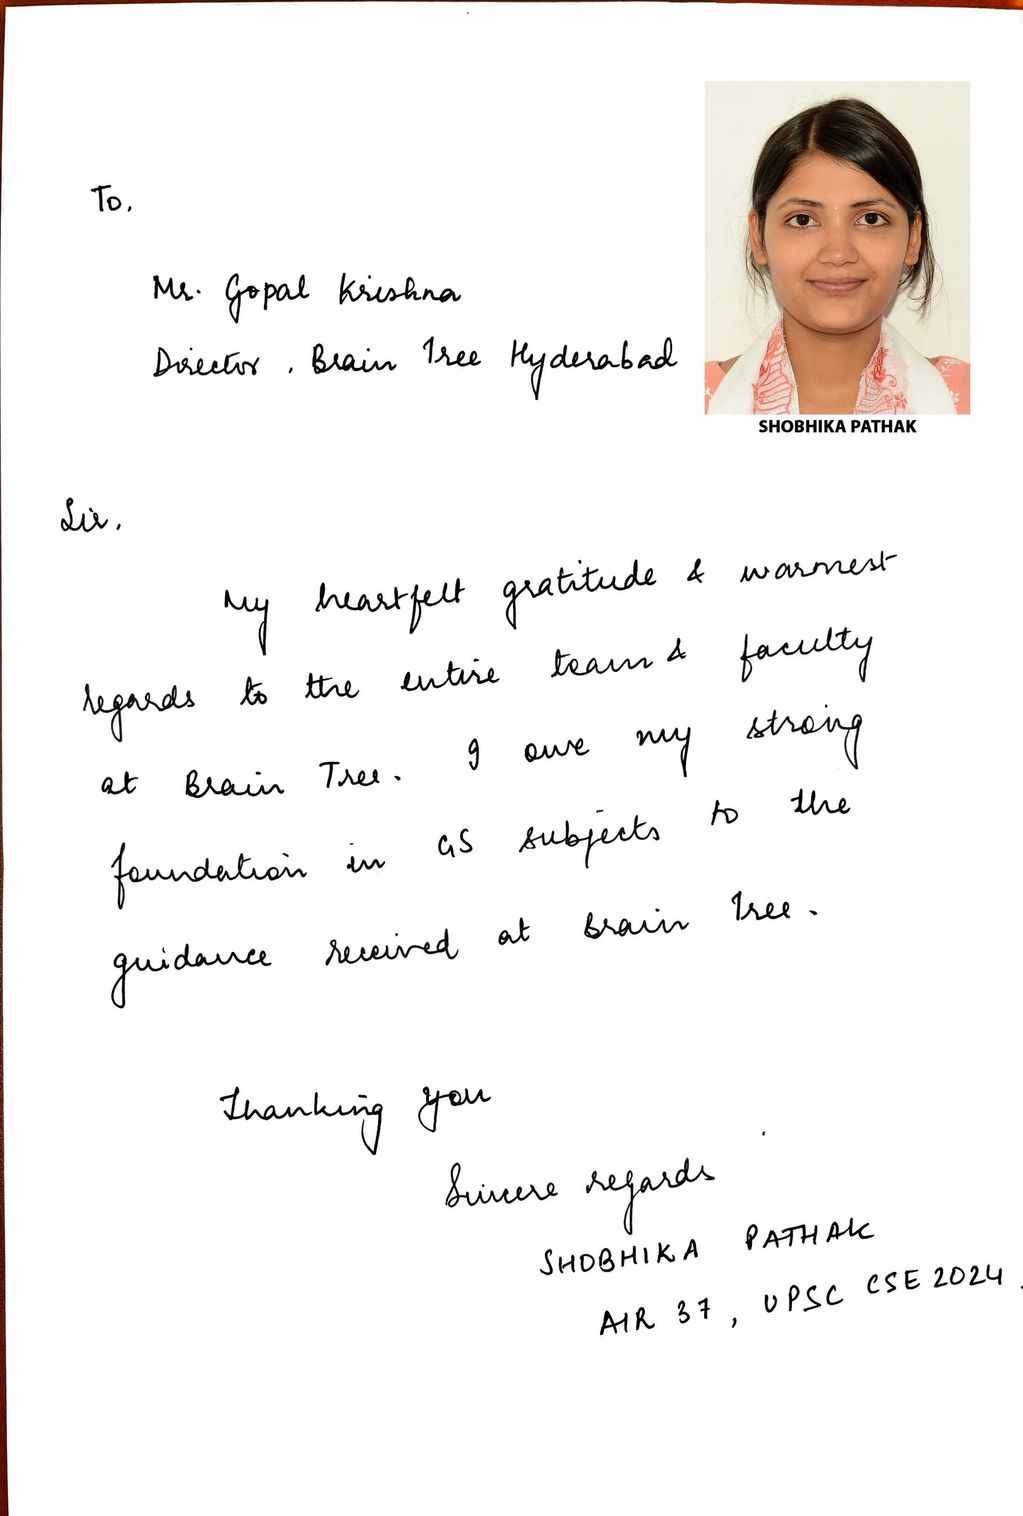 To,
Mr. Gopal Krishna
Director, Brain Tree Hyderabad
SHOBHIKA PATHAK
Sir,
My heartfelt gratitude & warmest
regards to the entire team & faculty
at Brain Tree. I owe my strong
foundation in GS subjects to the
guidance received at Brain Tree.
Thanking you
Sincere regards
SHOBHIKA PATHAK
AIR 37, UPSC CSE 2024.